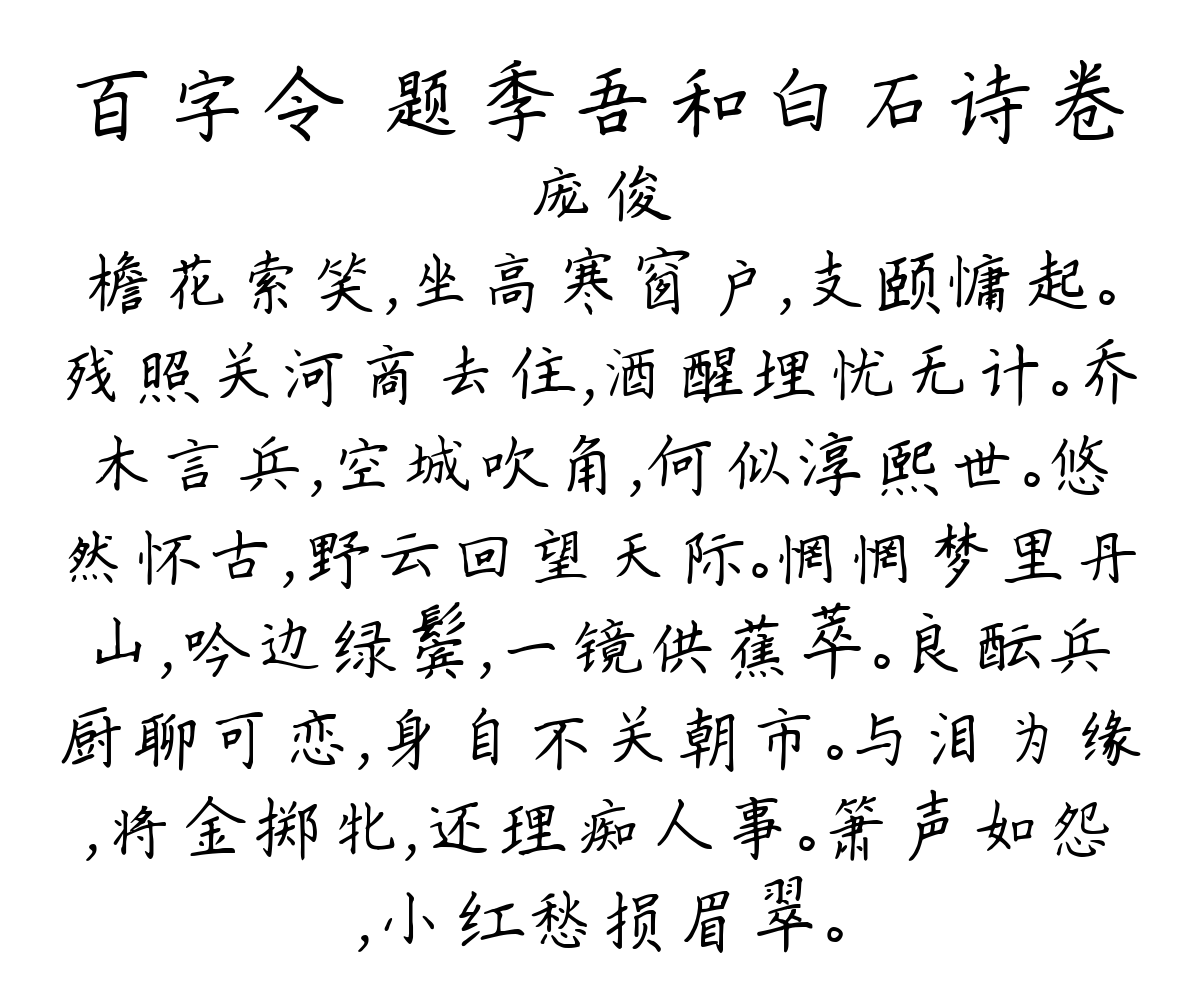 百字令 题季吾和白石诗卷
庞俊
檐花索笑,坐高寒窗户,支颐慵起。
残照关河商去住,酒醒埋忧无计。乔
木言兵,空城吹角,何似淳熙世。悠
然怀古,野云回望天际。惘惘梦里丹
山,吟边绿鬓,一镜供蕉萃。良酝兵
厨聊可恋,身自不关朝市。与泪为缘
,将金掷牝,还理痴人事。箫声如怨
,小红愁损眉翠。